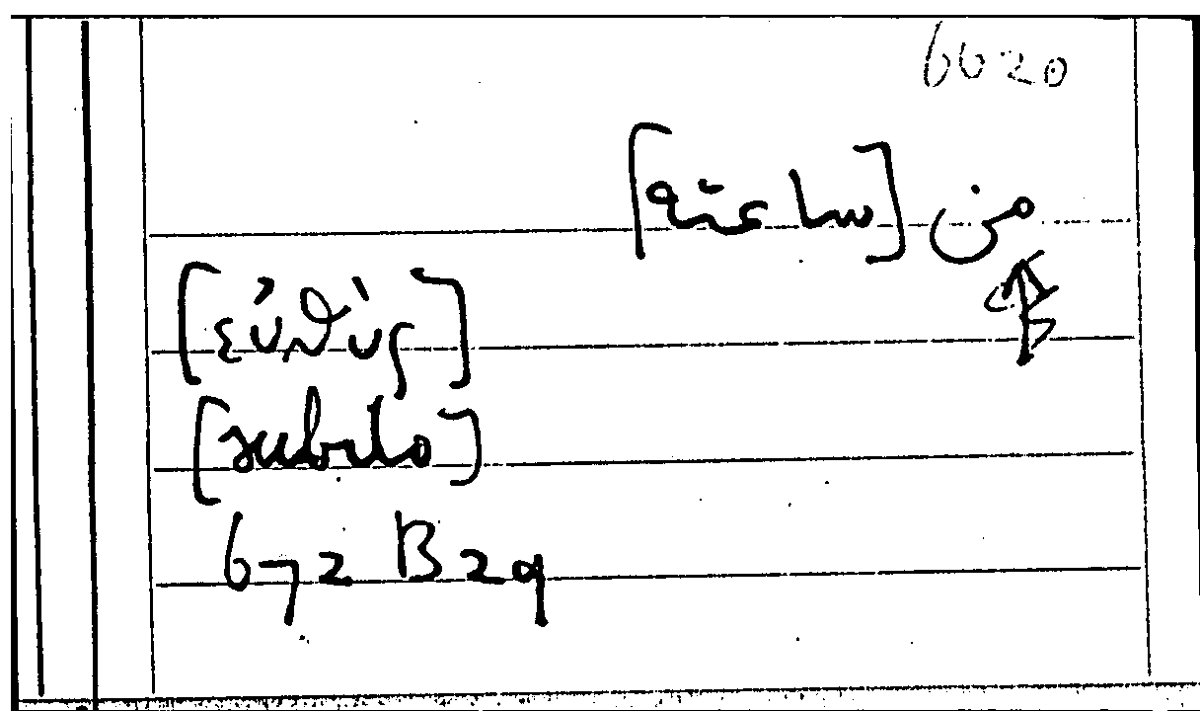 6620
من [ساعته]
[εὐθὺς]
[subito]
672 B 29